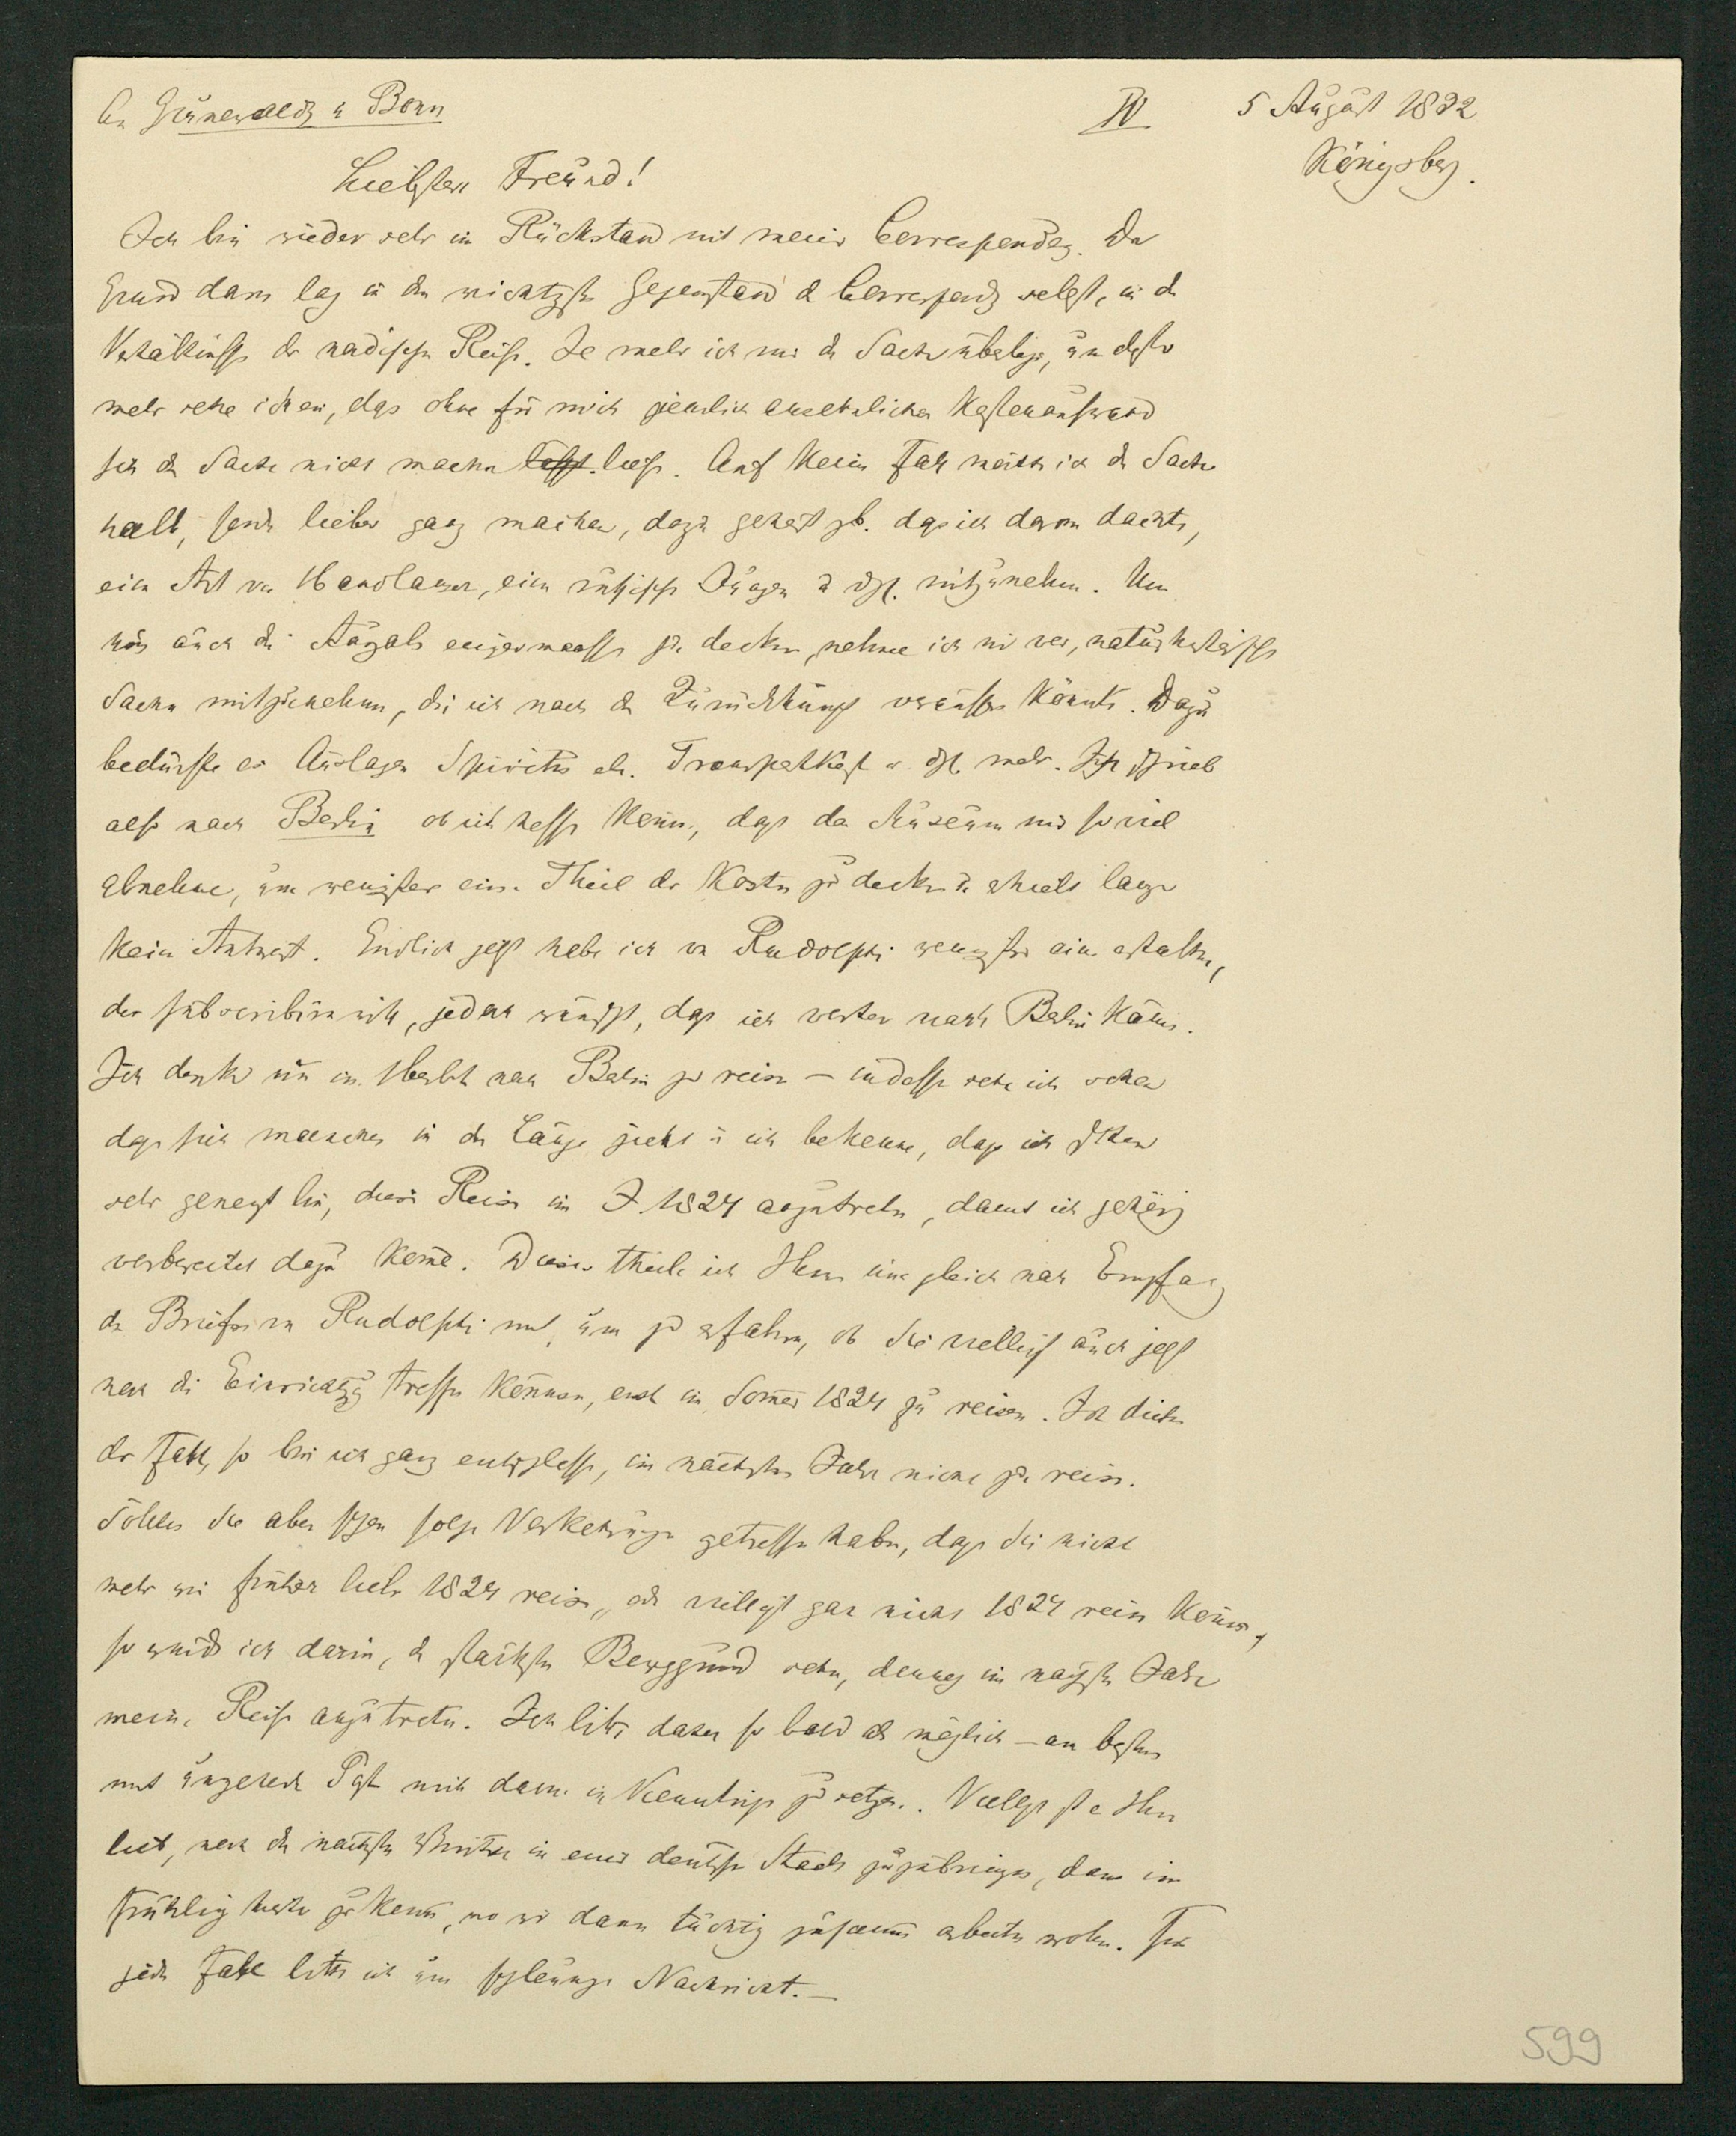 An Grünewaldt in Bonn
IV
5 August 1822
Königsberg.
Liebster Freund!
Ich bin wieder sehr im Rückstand mit meiner Correspondez. Der
Grund davon lag in den wichtigsten Gegenstand d Correspondz selbst, in d
Verhältnisse der nordischen Reise. Je mehr ich mir d Sache überlege, um desto
mehr sehe ich ein, dass ohne für mich ziemlich ansehnlichen Kostenaufwand
sich d Sache nicht machen liesse. Auf keinen Fall möchte ich d Sache
halb, sondern lieber ganz machen, dazu gehört zb. dass ich daran dachte,
eine Art von Handlanger, einen russischen Jungen u dgl. mitzunehmen. Um
nun auch die Ausgabe einigermassen zu decken, nehme ich mir vor, naturhistorische
Sachen mitzunehmen, die ich nach d Zurückkunft veräussern könnte. Dazu
bedürfte es Auslagen Spiritus etc. Transportkost u. dgl. mehr. Ich schrieb
also nach Berlin ob ich hoffen könne, dass das Museum mir so viel
abnehme, um wenigstens einen Theil der Kosten zu decken u erhielt lange
keine Antwort. Endlich jetzt habe ich von Rudolphi wenigstens eine erhalten,
der subscribiren will, jedoch wünscht, dass ich vorher nach Berlin käme.
Ich denke nun im Herbst nach Berlin zu reisen – indessen sehe ich schon
dass sich manches in die Länge zieht u ich bekenne, dass ich schon
sehr geneigt bin, diese Reise im J. 1824 anzutreten, damit ich gehörig
vorbereitet dazu komme. Dieses theile ich Ihnen nun gleich nach Empfang
des Briefes von Rudolphi mit, um zu erfahren, ob Sie vielleicht auch jetzt
noch die Einrichtg treffen können, erst im Sommer 1824 zu reisen. Ist dieses
der Fall, so bin ich ganz entschlossen, im nächsten Jahr nicht zu reisen.
Sollten Sie aber schon solche Vorkehrungen getroffen haben, dass Sie nicht
mehr wie früher lieber 1824 reisen, oder vielleicht gar nicht 1824 reisen können,
so würde ich darin, d stärksten Beweggrund sehen, dennoch im nächsten Jahre
meine Reise anzutreten. Ich bitte daher so bald als möglich – am besten
mit umgehender Post mich davon in Kenntniss zu setzen. Vielleicht ist es Ihnen
lieb, noch den nächsten Winter in einer deutschen Stadt zuzubringen, dann im
Frühling hierher zu kommen, wo wir dann tüchtig zusammen arbeiten wollen. Für
jeden Fall bitte ich um schleunige Nachricht. –
599